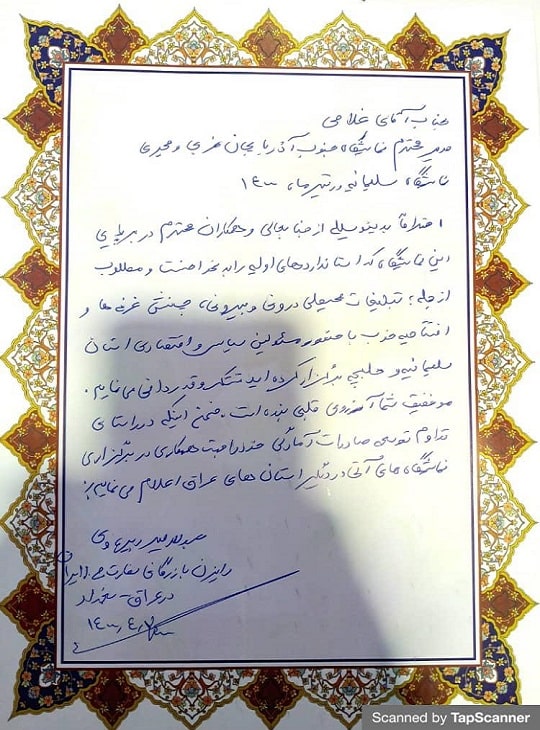 جناب آقای غلامی
مدیر محترم نمایشگاه جنوب آذربایجان غربی و مجری
نمایشگاه سلیمانیه در تیرماه ۱۴۰۰
احتراماً بدینوسیله از جنابعالی و همکاران محترم در برپایی
این نمایشگاه که استانداردهای اولیه را به نحو احسنت و مطلوب
از جمله؛ تبلیغات محیطی درونی و بیرونی، چینش غرفه ها و
افتتاحیه خوب با حضور مسئولین سیاسی و اقتصادی استان
سلیمانیه و حلبچه برگزار کرده اید تشکر و قدردانی می نمایم.
موفقیت شما آرزوی قلبی بنده است. ضمن اینکه در راستای
تداوم توسعه صادرات آمادگی خود را جهت همکاری در برگزاری
نمایشگاه های آتی در دیگر استان های عراق اعلام می نمایم؛
عبدالامیر ربیهاوی
رایزن بازرگانی سفارت ج.ا.ایران
در عراق - بغداد
Scanned by TapScanner